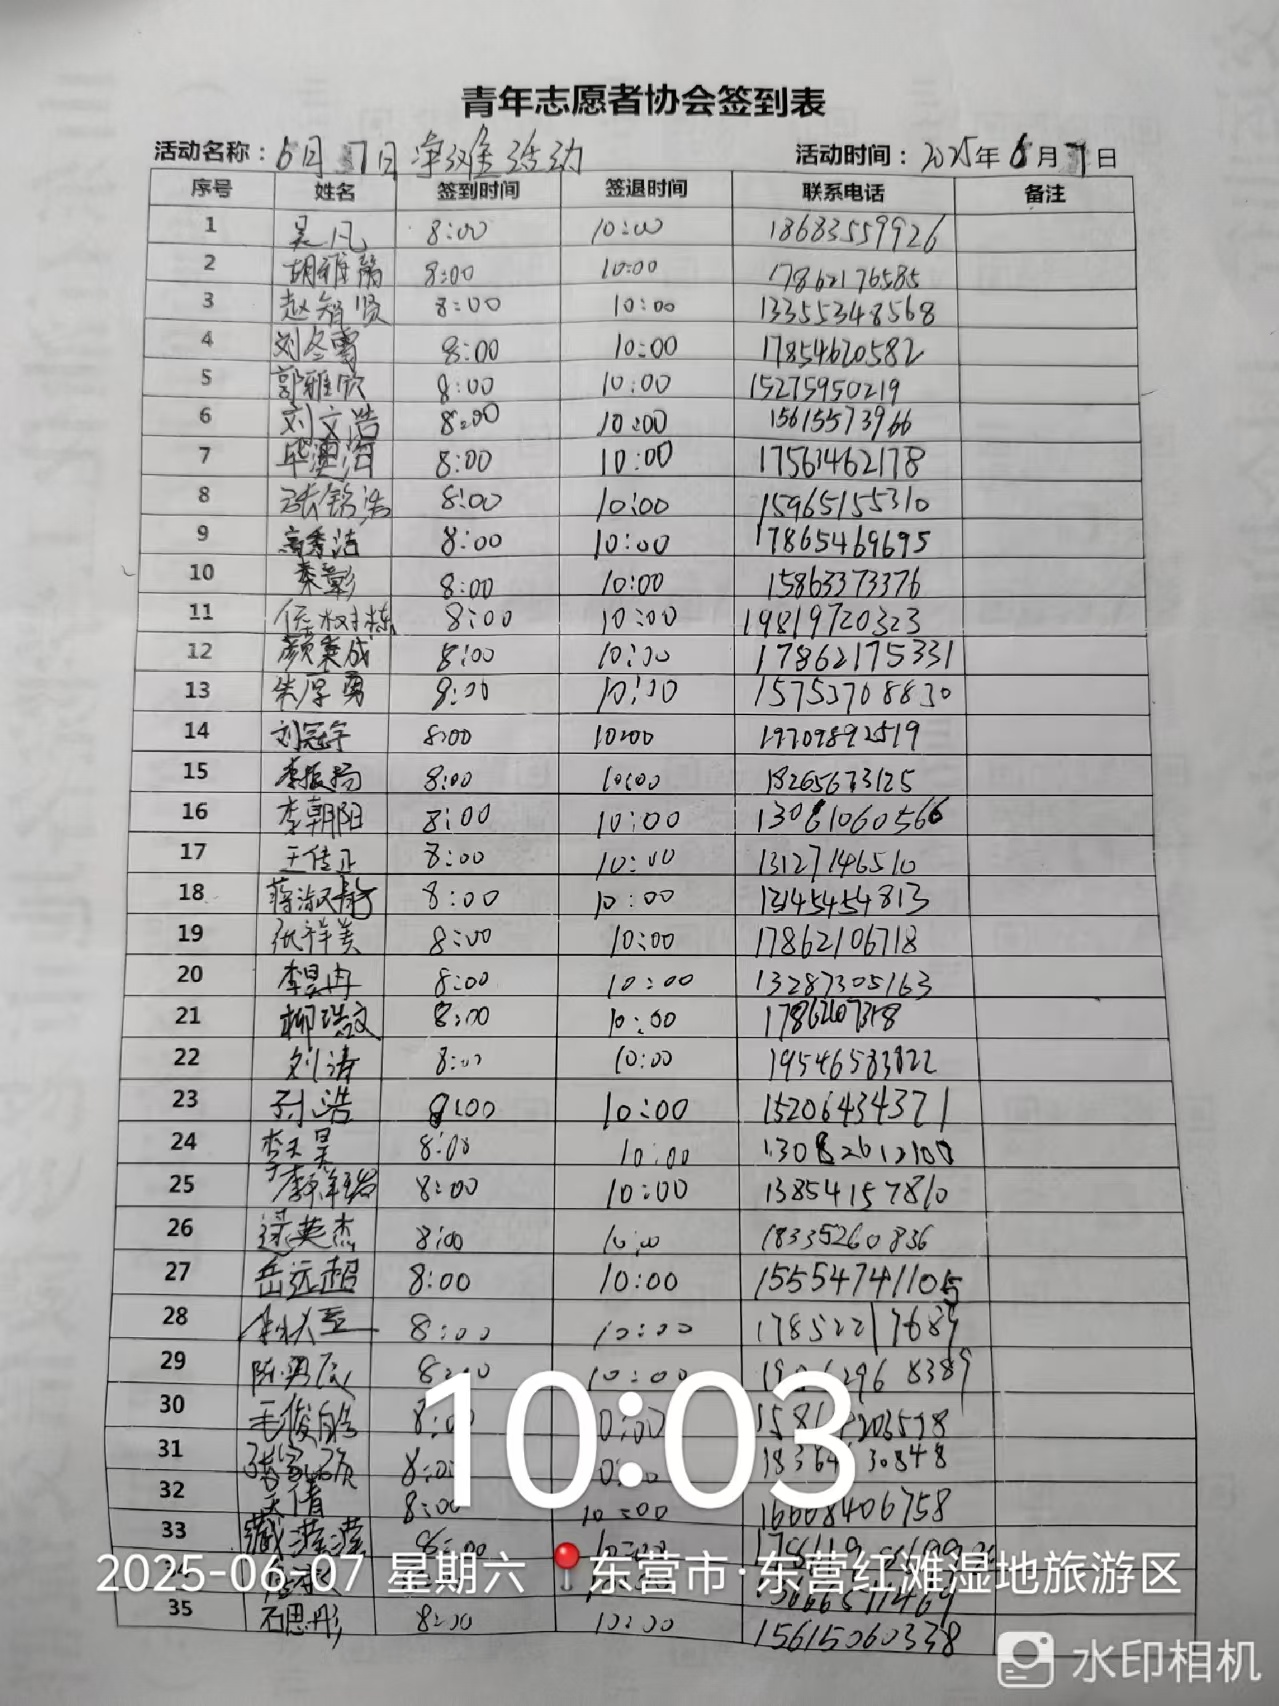 青年志愿者协会签到表
活动名称：6月7日净滩活动 活动时间：2025年6月7日
序号 姓名 签到时间 签退时间 联系电话 备注
1 吴凡 8:00 10:00 18683559926
2 胡雅菊 8:00 10:00 17862176585
3 赵智贤 8:00 10:00 13355348568
4 刘冬雪 8:00 10:00 17854620582
5 郭雅欣 8:00 10:00 15275950219
6 刘文浩 8:00 10:00 15615573966
7 毕澳海 8:00 10:00 17561462178
8 张铭浩 8:00 10:00 15965155310
9 高秀洁 8:00 10:00 17865469695
10 秦彰 8:00 10:00 15863373376
11 侯树栋 8:00 10:00 19819720323
12 颜秉成 8:00 10:00 17862175331
13 朱厚勇 8:00 10:00 15753708830
14 刘冠宇 8:00 10:00 19709892519
15 李振扬 8:00 10:00 18265673125
16 李朝阳 8:00 10:00 13061060566
17 王传正 8:00 10:00 13127146510
18 蒋淑静 8:00 10:00 13145454813
19 张祥美 8:00 10:00 17862106718
20 李昊冉 8:00 10:00 13287305163
21 柳浩文 8:00 10:00
22 刘涛 8:00 10:00 19546583822
23 孙浩 8:00 10:00 15206434371
24 李天昊 8:00 10:00 13082612100
25 8:00 10:00 13854157810
26 逯英杰 8:00 10:00 18335260836
27 岳远超 8:00 10:00 15554741105
28 8:00 10:00 17852217689
29 8:00 10:00
30 毛俊皓 8:00
31 8:00
32 8:00 10:00 16608406758
33 臧滢滢 8:00 10:00
35 石思彤 8:00 10:00 15615060338
10:03
2025-06-07 星期六 东营市·东营红滩湿地旅游区
水印相机